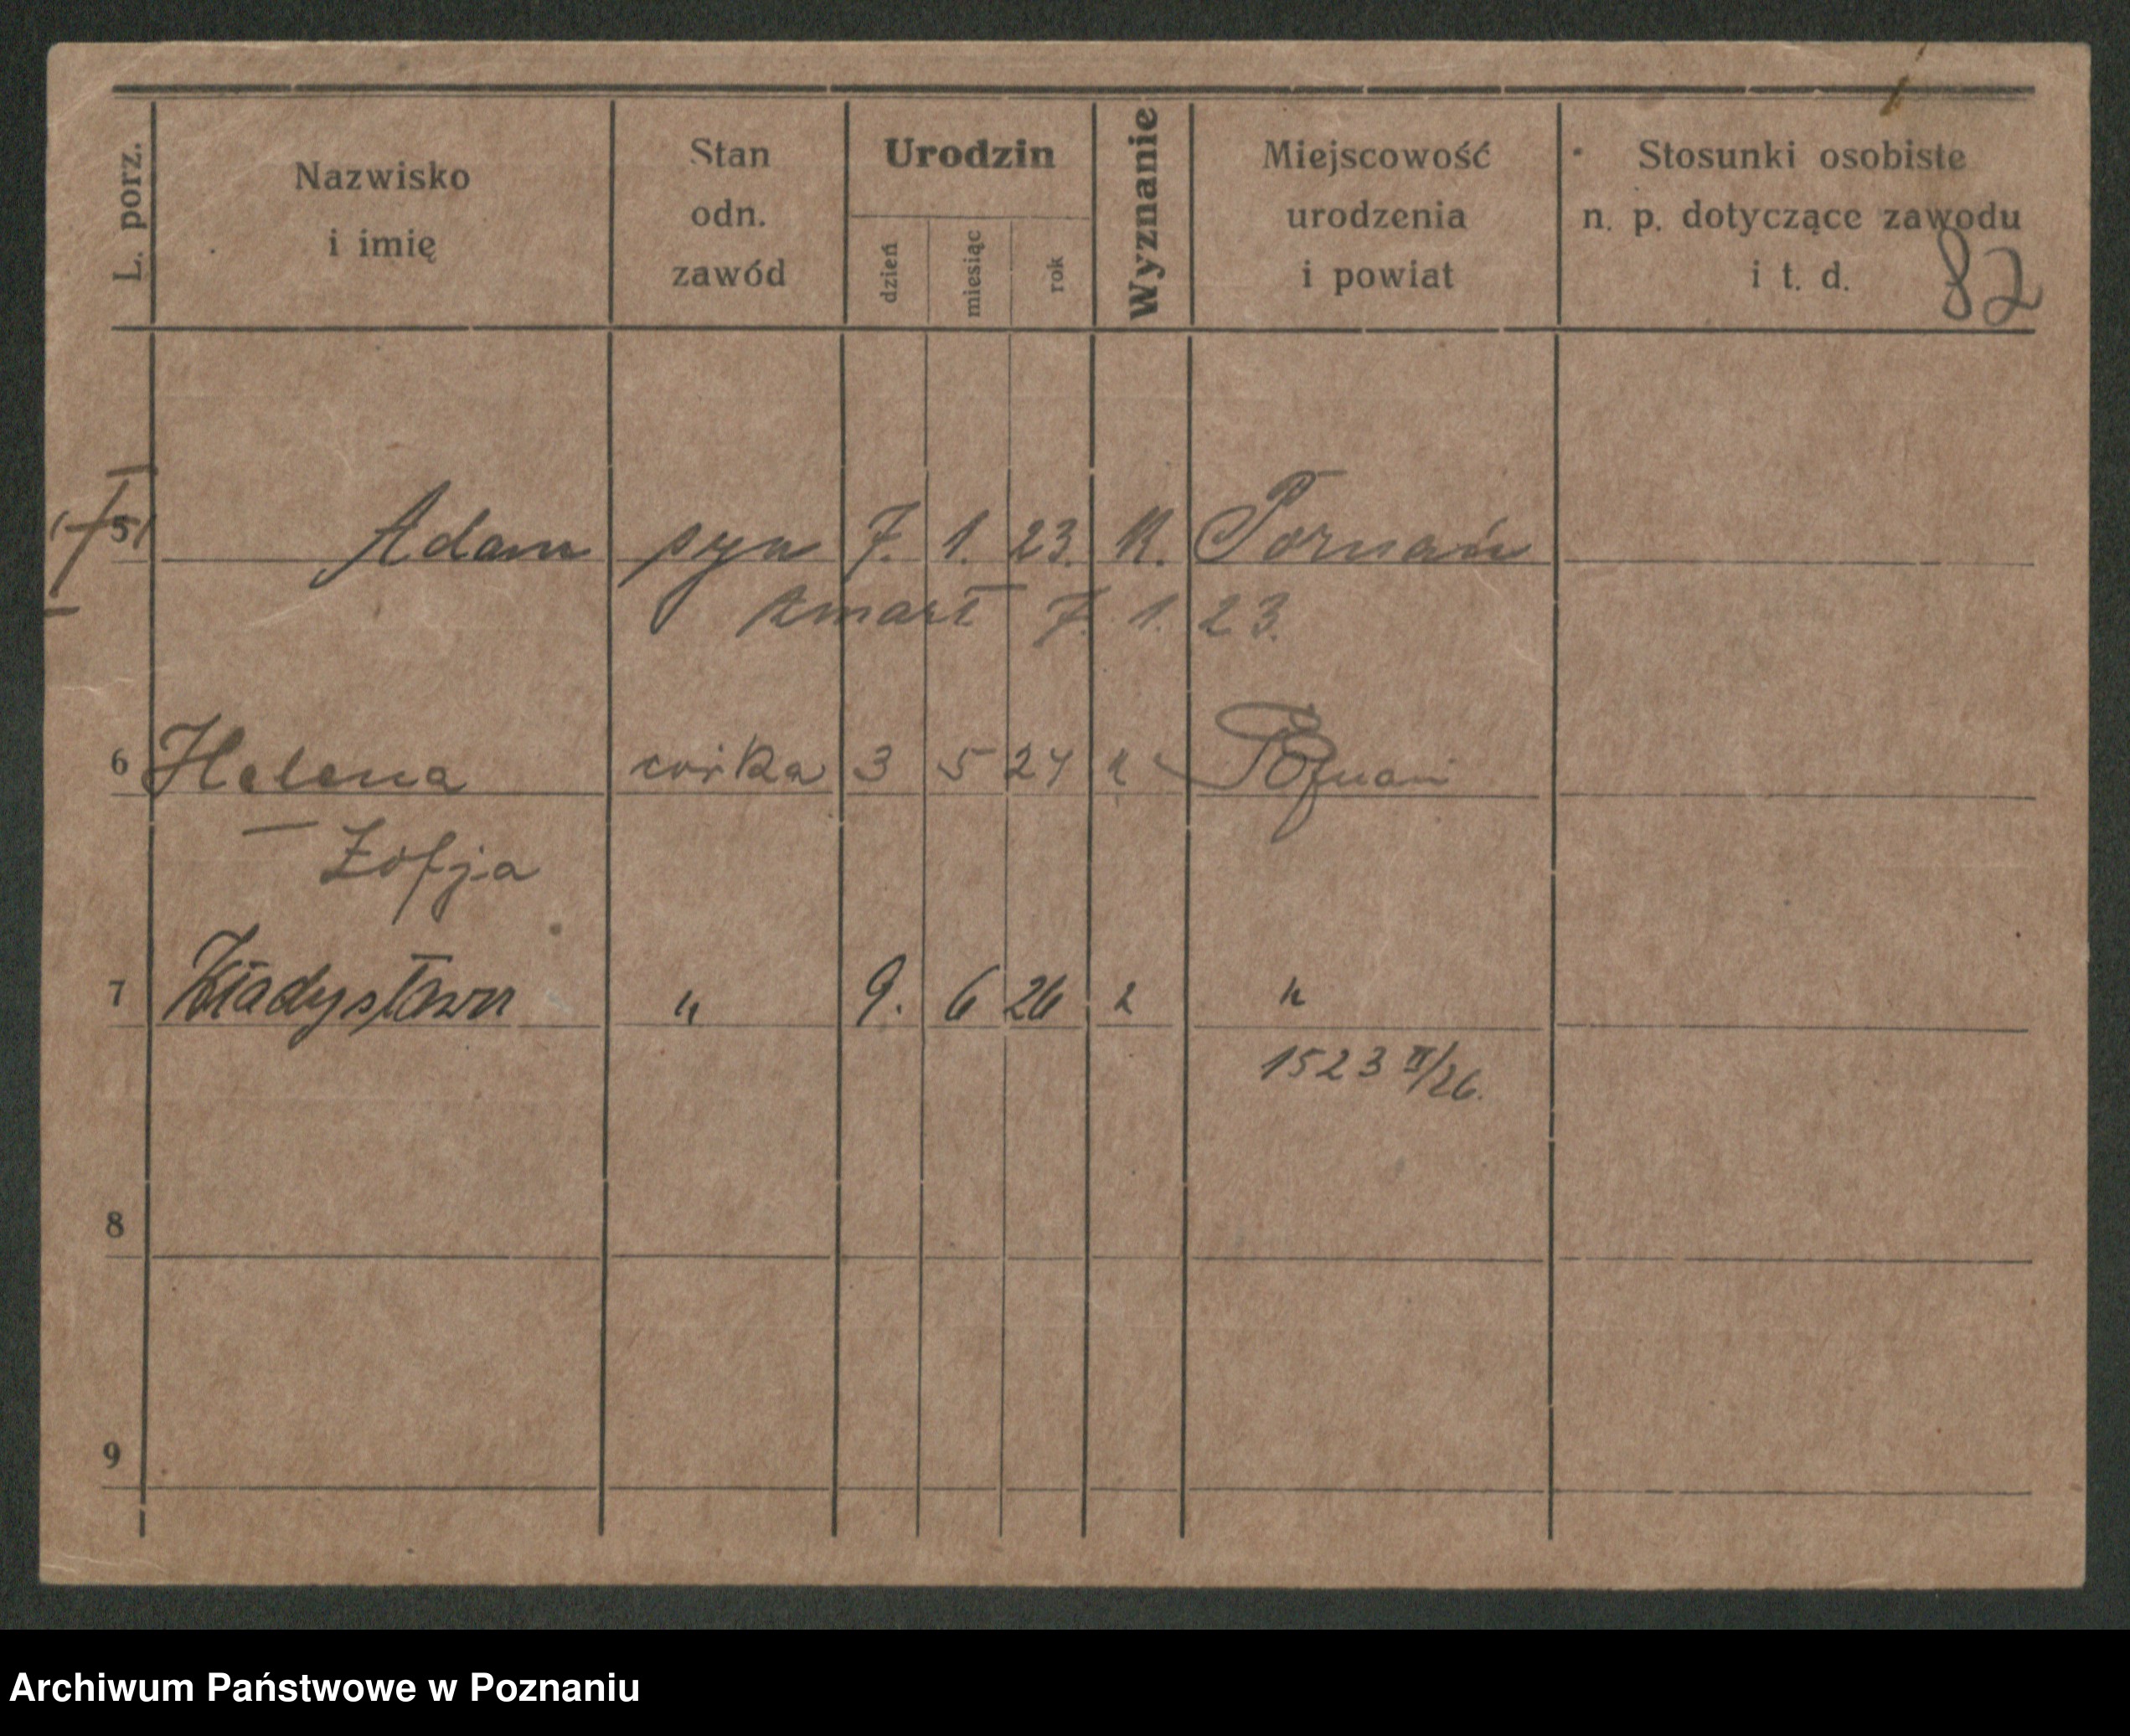 L. porz. Nazwisko i imię Stan odn. zawód Urodzin dzień miesiąc rok Wyznanie Miejscowość urodzenia i powiat Stosunki osobiste n. p. dotyczące zawodu i t. d.
82
5 Adam syn 7. 1. 23. K. Poznań
zmarł 7. 1. 23.
6 Helena córka 3 5 24 k Poznań
— Zofja
7 Władysława " 9. 6 26 k "
1523 II/26.
8
9
Archiwum Państwowe w Poznaniu